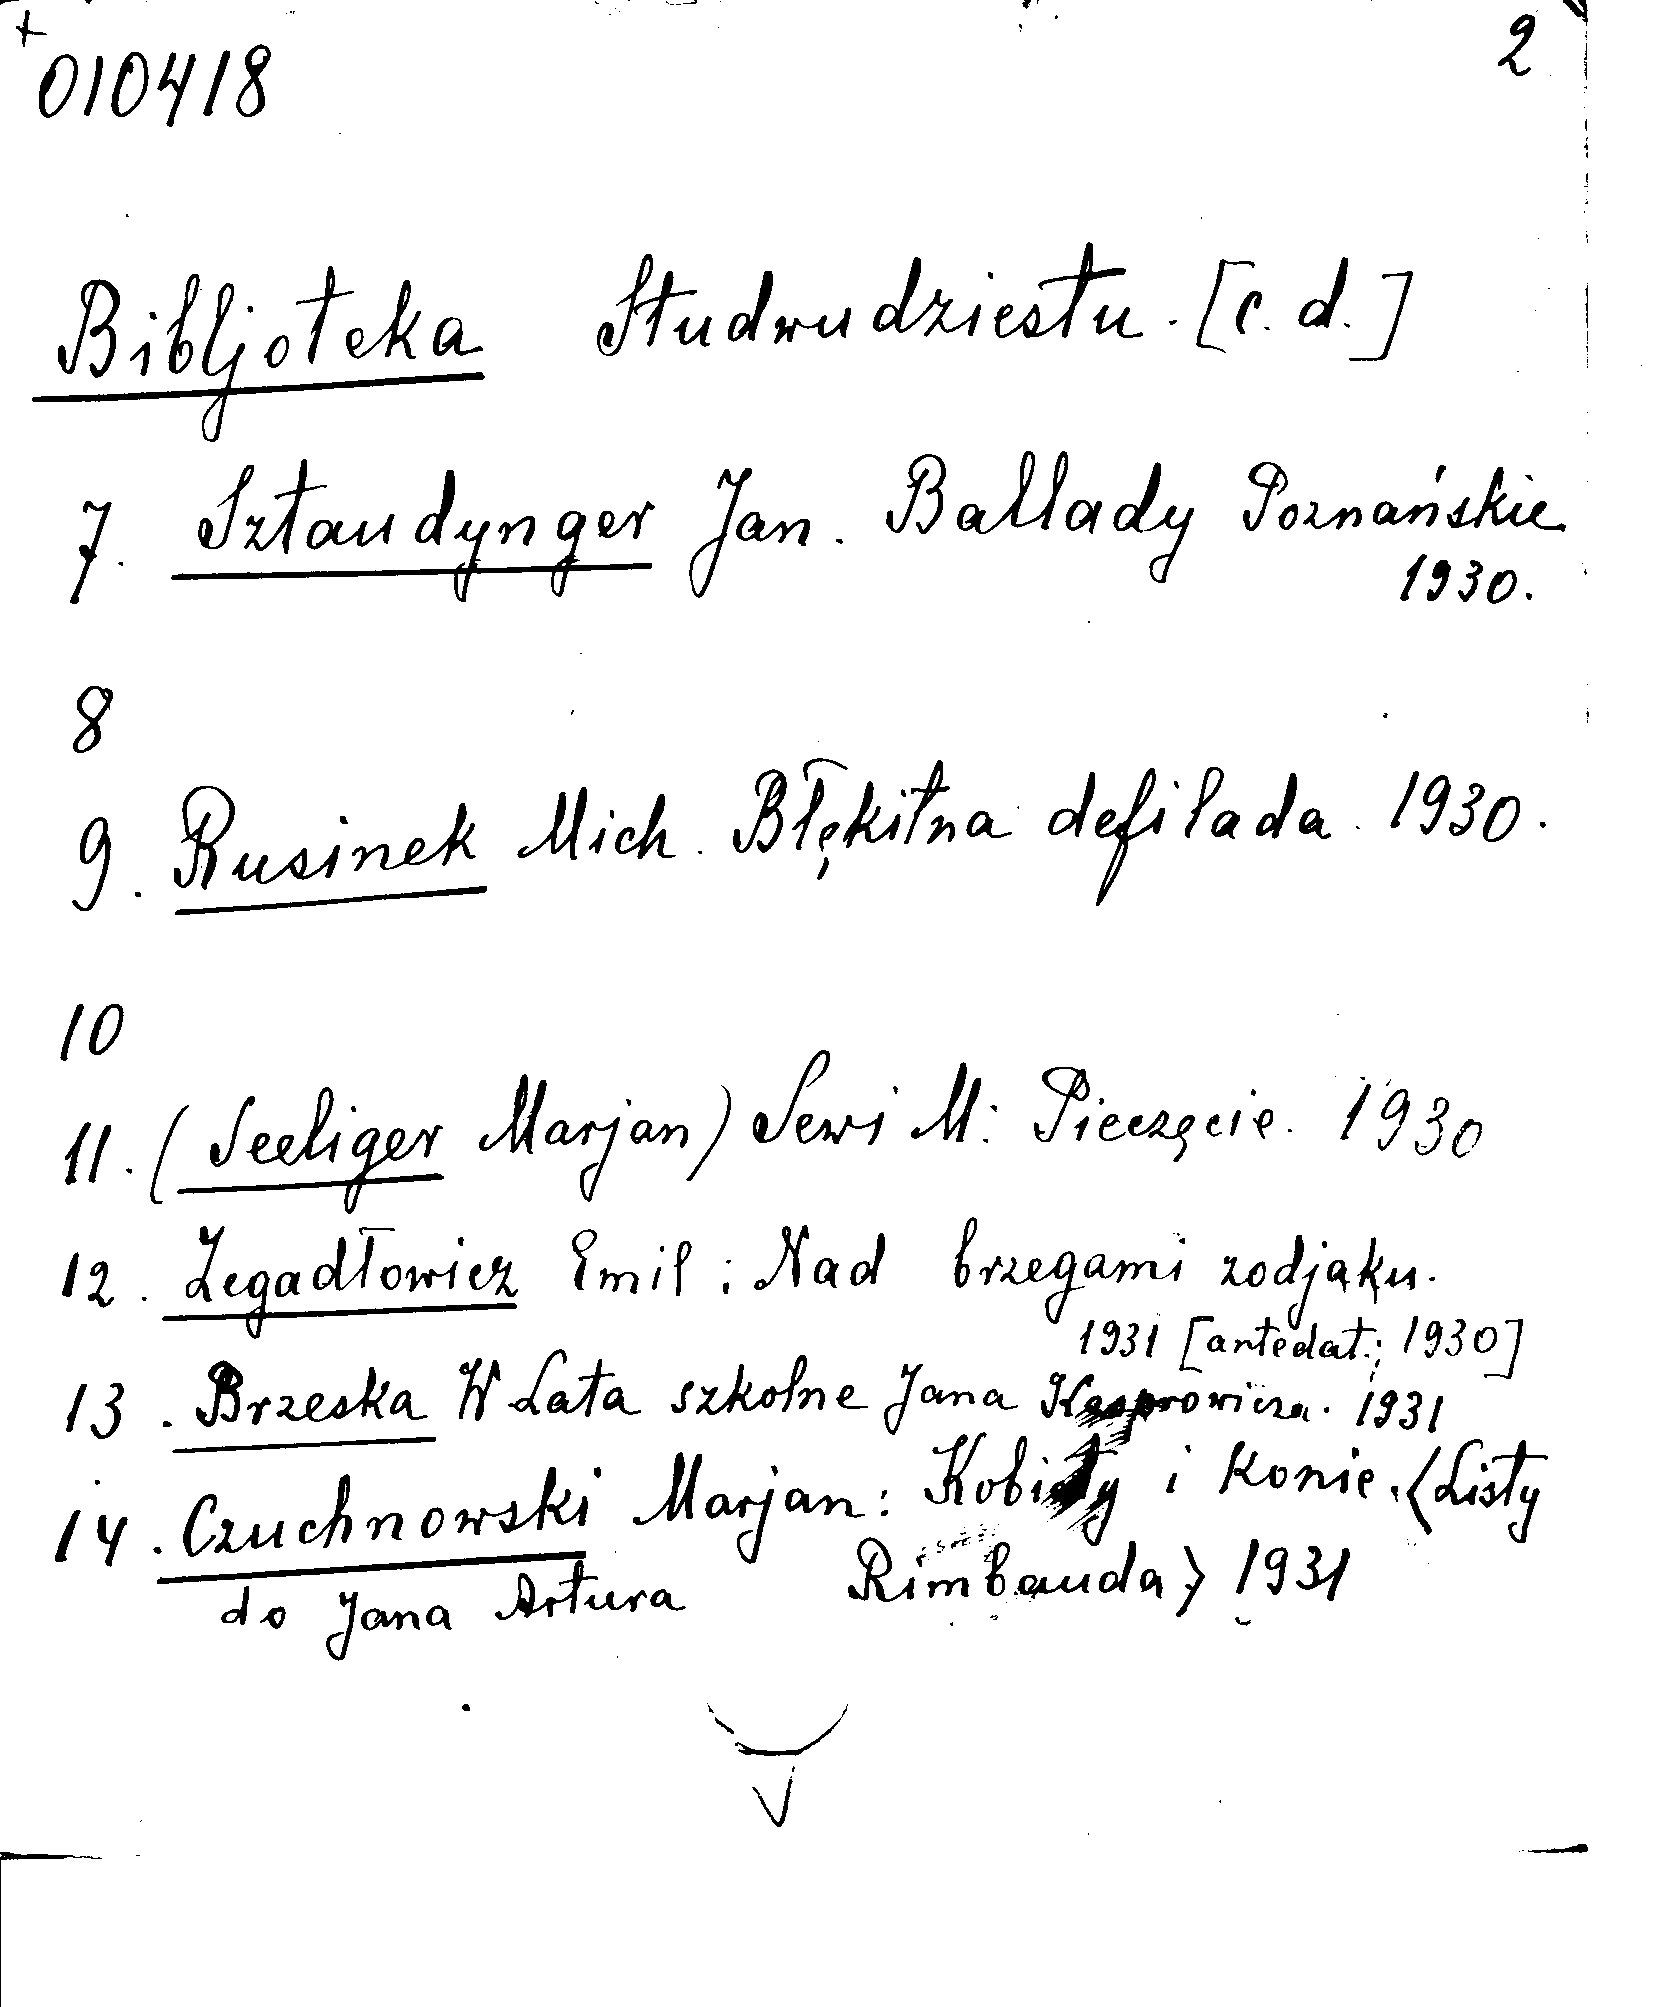 +
010418
2
Bibljoteka Studwudziestu. [c. d.]
7. Sztaudynger Jan. Ballady Poznańskie
1930.
8
9. Rusinek Mich. Błękitna defilada. 1930.
10
11. (Seeliger Marjan) Sewi M: Pieczęcie. 1930
12. Zegadłowicz Emil: Nad brzegami zodjaku.
1931 [antedat.; 1930]
13. Brzeska W Lata szkolne Jana Kasprowicza. 1931
14. Czuchnowski Marjan: Kobiety i Konie. <Listy
do Jana Artura Rimbauda> 1931
V